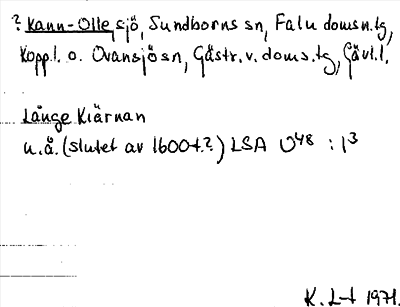 ? Kann-Olle sjö, Sundborns sn, Falu doms.tg,
Koppl. o. Ovansjö sn, Gästr.v.doms.tg, Gävl.l.
Långe Kiärnan
u.å. (slutet av 1600-t.?) LSA U48 : 1³
K. L-t 1971.